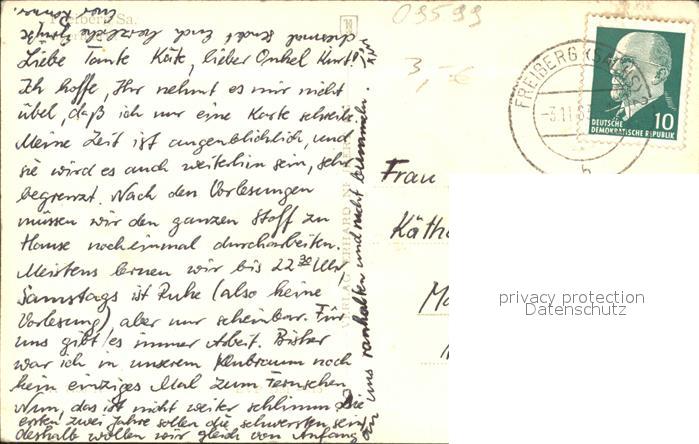 Freiberg Sa.
09599
3,- €
FREIBERG (SACHS)
-3.11.6
b
10
DEUTSCHE
DEMOKRATISCHE REPUBLIK
Liebe Tante Käte, lieber Onkel Kurt!
Ich hoffe, Ihr nehmt es mir nicht
übel, daß ich nur eine Karte schreibe.
Meine Zeit ist augenblicklich, und
sie wird es auch weiterhin sein, sehr
begrenzt. Nach den Vorlesungen
müssen wir den ganzen Stoff zu
Hause noch einmal durcharbeiten.
Meistens lernen wir bis 22 30 Uhr,
Samstags ist Ruhe (also keine
Vorlesung), aber nur scheinbar. Für
uns gibt es immer Arbeit. Bisher
war ich in unserem Klubraum noch
kein einziges Mal zum Fernsehen.
Nun, das ist nicht weiter schlimm. Die
ersten zwei Jahre sollen die schwersten sein,
deshalb wollen wir gleich von Anfang
an uns ranhalten und nicht bummeln.
diesmal sendet Euch herzliche Grüße
Euer
Frau
Käth
privacy protection
Datenschutz